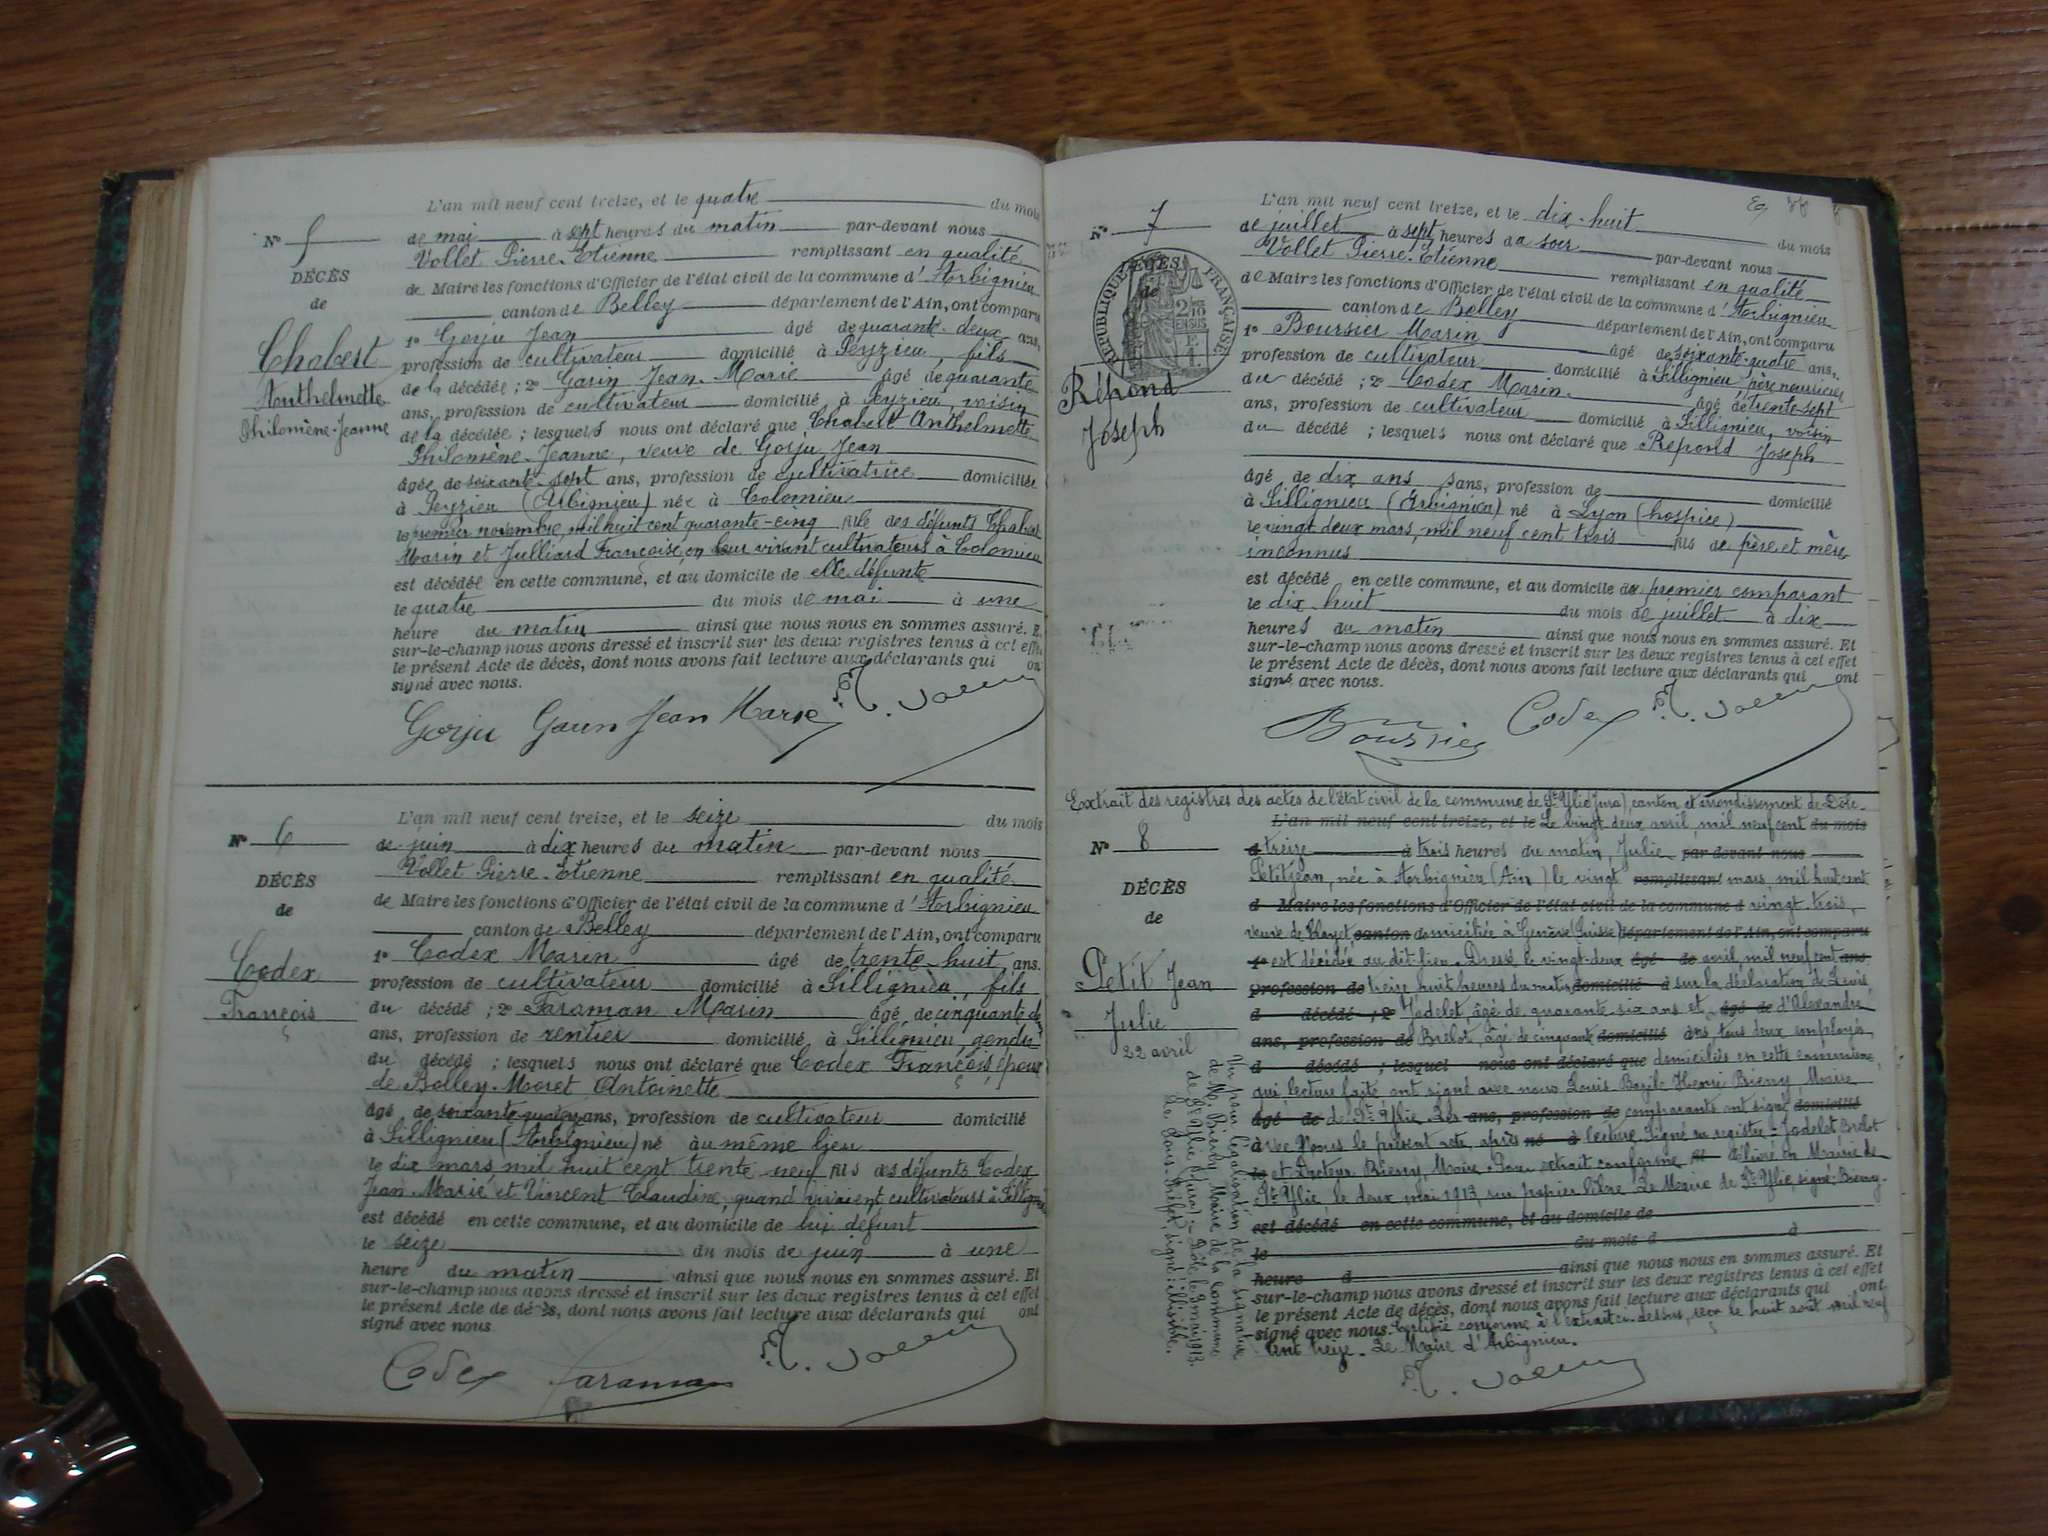 L'an mil neuf cent treize, et le quatre du mois
N° 5
de mai à sept heures du matin par-devant nous
Vollet Pierre-Etienne remplissant en qualité
DÉCÈS
de Maire les fonctions d'Officier de l'état civil de la commune d'Arbignieu
de
canton de Belley département de l'Ain, ont comparu
1° Gorju Jean âgé de quarante-deux ans,
Chabert
profession de cultivateur domicilié à Peyzieu, fils
Anthelmette
de la décédée ; 2° Garin Jean-Marie âgé de quarante
ans, profession de cultivateur domicilié à Peyzieu, voisin
Philomène-Jeanne
de la décédée ; lesquels nous ont déclaré que Chabert Anthelmette
Philomène-Jeanne, veuve de Gorju Jean
âgée de soixante-sept ans, profession de cultivatrice domiciliée
à Peyzieu (Arbignieu) née à Colomieu
le premier novembre, mil huit cent quarante-cinq fille des défunts Chabert
Marin et Julliard Françoise, en leur vivant cultivateurs à Colomieu
est décédée en cette commune, et au domicile de elle défunte
le quatre du mois de mai à une
heure du matin ainsi que nous nous en sommes assuré. Et
sur-le-champ nous avons dressé et inscrit sur les deux registres tenus à cet effet
le présent Acte de décès, dont nous avons fait lecture aux déclarants qui ont
signé avec nous.
Gorju Garin Jean Marie
L'an mil neuf cent treize, et le seize du mois
N° 6
de juin à dix heures du matin par-devant nous
Vollet Pierre-Etienne remplissant en qualité
DÉCÈS
de Maire les fonctions d'Officier de l'état civil de la commune d'Arbignieu
de
canton de Belley département de l'Ain, ont comparu
1° Codex Marin âgé de trente-huit ans.
Codex
profession de cultivateur domicilié à Sillignieu, fils
François
du décédé ; 2° Taraman Marin âgé de cinquante-
ans, profession de rentier domicilié à Sillignieu, gendre
du décédé ; lesquels nous ont déclaré que Codex François, époux
de Bolley-Moret Antoinette
âgé de soixante-quatorze ans, profession de cultivateur domicilié
à Sillignieu (Arbignieu) né au même lieu
le dix mars, mil huit cent trente-neuf fils des défunts Codex
Jean-Marie et Vincent Claudine, quand vivaient cultivateurs à Sillignieu
est décédé en cette commune, et au domicile de lui défunt
le seize du mois de juin à une
heure du matin ainsi que nous nous en sommes assuré. Et
sur-le-champ nous avons dressé et inscrit sur les deux registres tenus à cet effet
le présent Acte de décès, dont nous avons fait lecture aux déclarants qui ont
signé avec nous
Codex Taraman
L'an mil neuf cent treize, et le dix-huit du mois
N° 7
de juillet à sept heures du soir par-devant nous
Vollet Pierre-Etienne remplissant en qualité
DÉCÈS
de
RÉPUBLIQUE FRANÇAISE
de Maire les fonctions d'Officier de l'état civil de la commune d'Arbignieu
canton de Belley département de l'Ain, ont comparu
1° Boursier Marin âgé de soixante-quatre ans,
profession de cultivateur domicilié à Sillignieu, père nourricier
Répond
du décédé ; 2° Codex Marin âgé de trente-sept
Joseph
ans, profession de cultivateur domicilié à Sillignieu, voisin
du décédé ; lesquels nous ont déclaré que Répond Joseph
âgé de dix ans sans, profession de domicilié
à Sillignieu (Arbignieu) né à Lyon (hospice)
le vingt-deux mars, mil neuf cent trois fils de père et mère
inconnus
est décédé en cette commune, et au domicile du premier comparant
le dix-huit du mois de juillet à dix
heures du matin ainsi que nous nous en sommes assuré. Et
sur-le-champ nous avons dressé et inscrit sur les deux registres tenus à cet effet
le présent Acte de décès, dont nous avons fait lecture aux déclarants qui ont
signé avec nous.
Boursier Codex
Extrait des registres des actes de l'état civil de la commune de St Ylie (Jura), canton et arrondissement de Dôle.
L'an mil neuf cent treize, et le Le vingt-deux avril, mil neuf cent du mois
N° 8
d treize à trois heures du matin, Julie par-devant nous
Petitjean, née à Arbignieu (Ain) le vingt remplissant mars, mil huit cent
DÉCÈS
d Maire les fonctions d'Officier de l'état civil de la commune d vingt-trois,
de
veuve de canton domiciliée à Genève (Suisse) département de l'Ain, ont comparu
1° est décédée au dit-lieu. Dressé, le vingt-deux âgé de avril, mil neuf cent ans
Petit Jean
profession de treize huit heures du matin domicilié à sur la déclaration de Louis
Julie
d décédé ; 2° Jodelet, âgé de quarante-six ans et âgé de d'Alexandre
22 avril
ans, profession de Brelot, âgé de cinquante domicilié ans, tous deux employés
d décédé ; lesquel nous ont déclaré que domiciliés en cette commune,
qui, lecture faite ont signé avec nous Louis Henri Bierry, Maire
âgé de de St Ylie. Les ans, profession de comparants ont signé domicilié
avec Nous le présent acte, après né à lecture. Signé au registre : Jodelet Brelot
le et Docteur Bierry Maire. Pour extrait conforme fil délivré en Mairie de
St Ylie, le deux mai 1913, sur papier libre. Le Maire de St Ylie, signé : Bierry.
est décédé en cette commune, et au domicile de
le du mois d à
heure d ainsi que nous nous en sommes assuré. Et
sur-le-champ nous avons dressé et inscrit sur les deux registres tenus à cet effet
le présent Acte de décès, dont nous avons fait lecture aux déclarants qui ont
signé avec nous. Certifié conforme à l'extrait ci-dessus, le huit août mil neuf
cent treize. Le Maire d'Arbignieu.
Vu pour légalisation de la signature
de M. Bierry, Maire de la commune
de St Ylie (Jura). Dôle, le 9 mai 1913.
Le Sous-Préfet, signé : illisible.